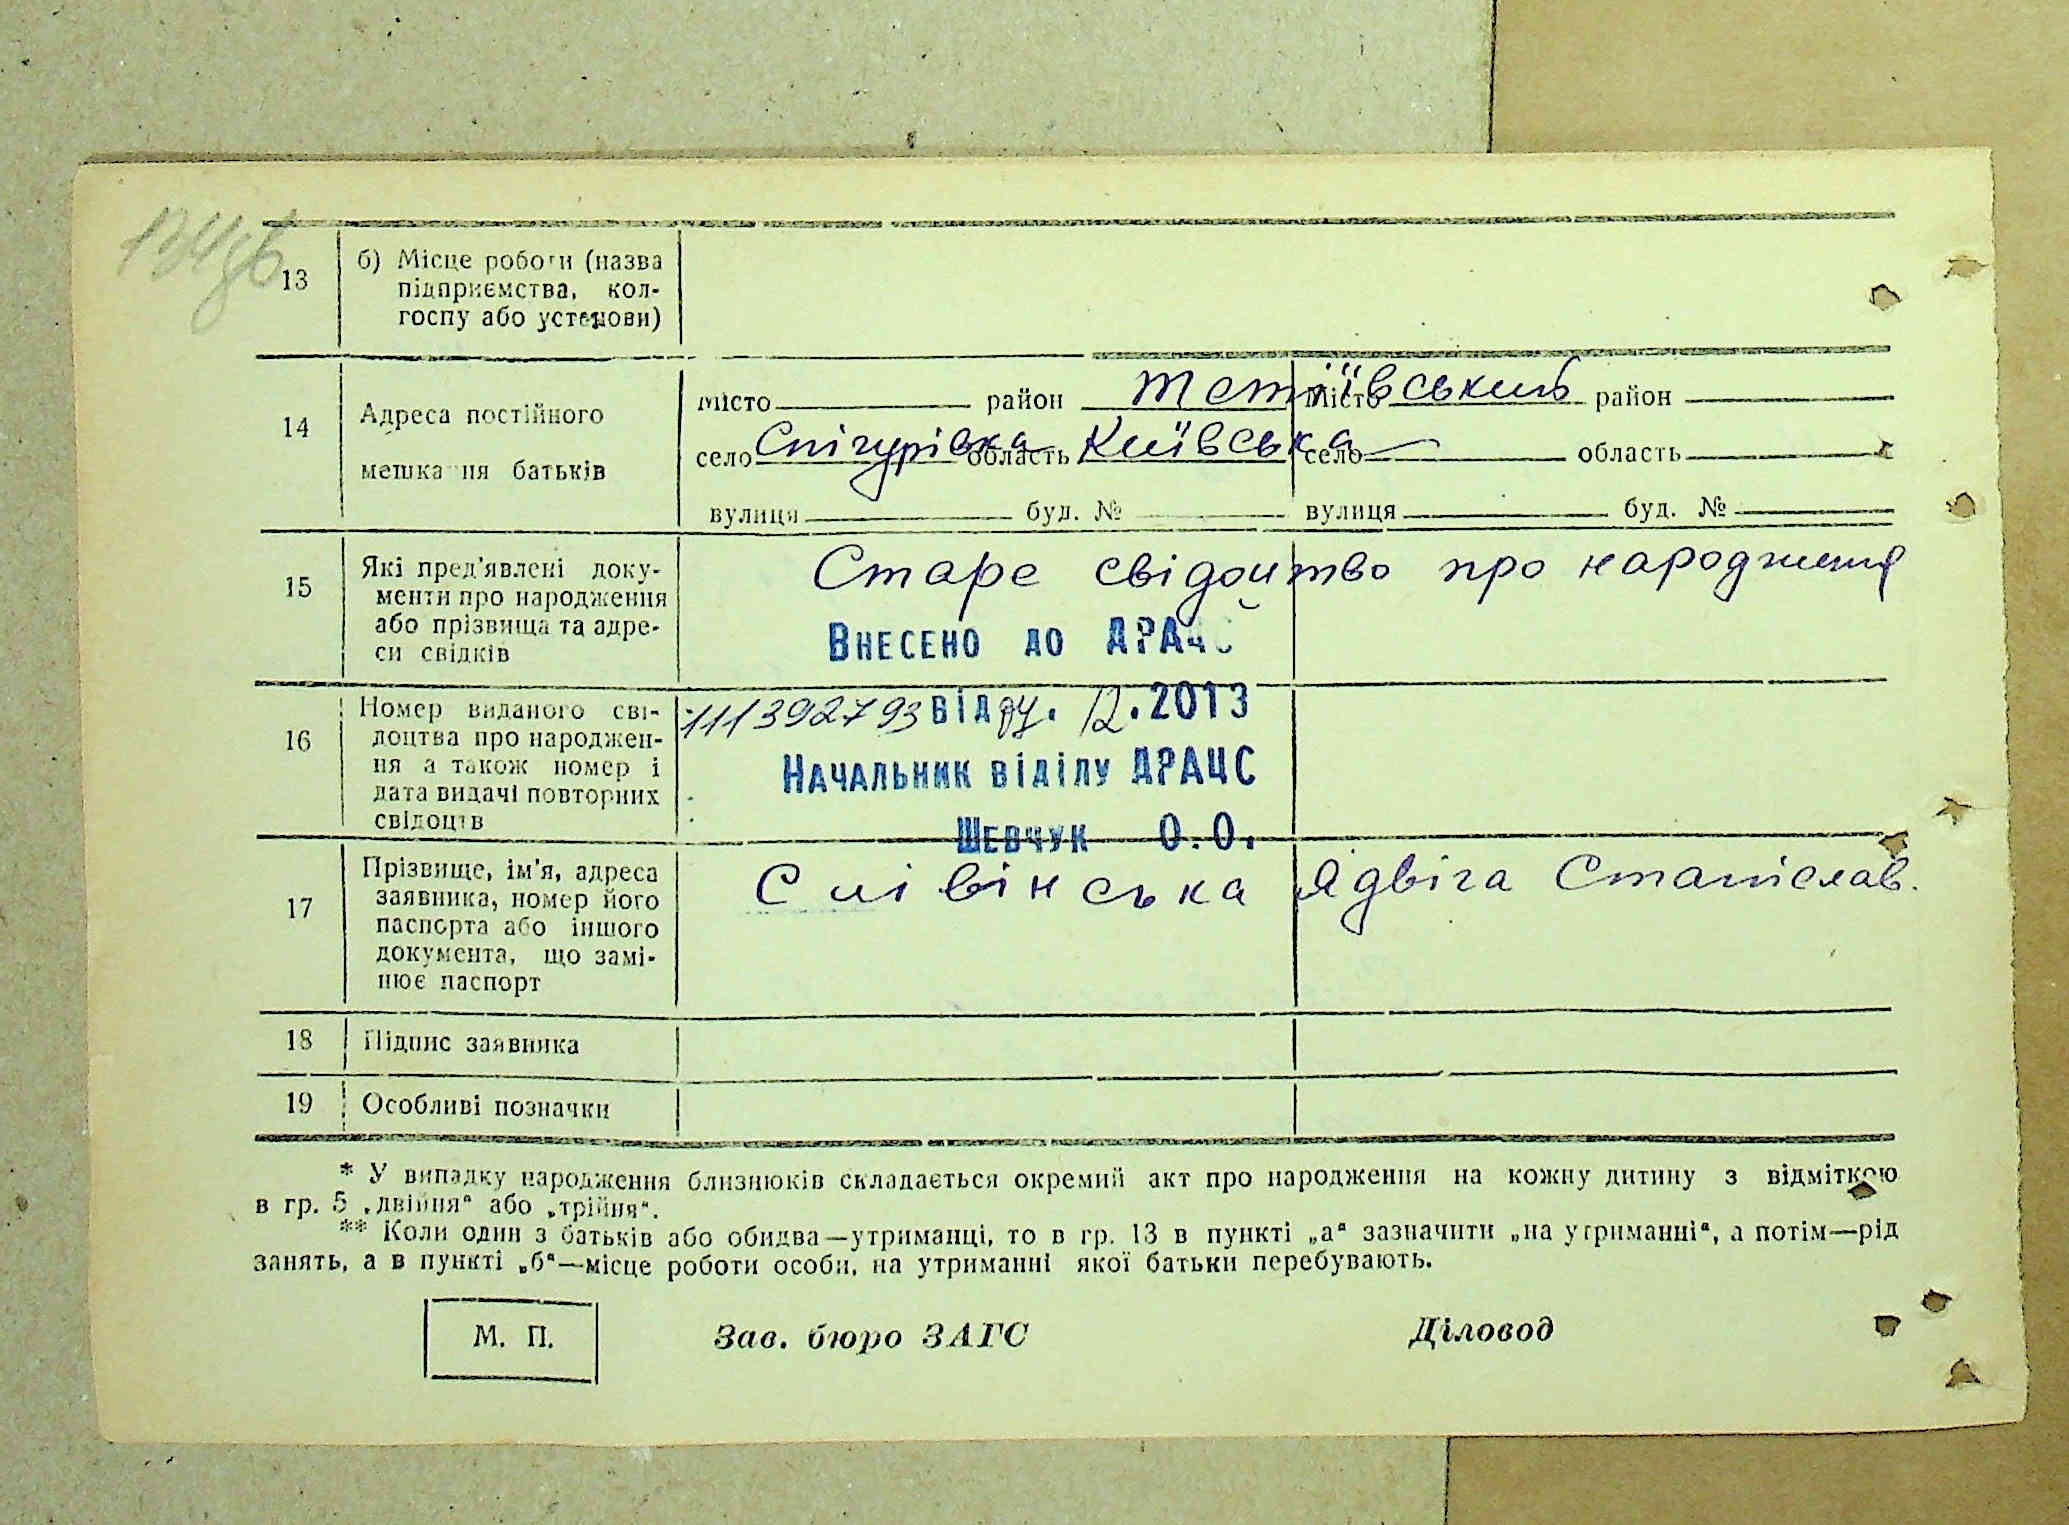 13 б) Місце роботи (назва
підприємства, кол-
госпу або установи)
14 Адреса постійного
мешкання батьків
місто район Тетіївський місто район
село Снігурівка область Київська село область
вулиця буд. № вулиця буд. №
15 Які пред'явлені доку-
менти про народження
або прізвища та адре-
си свідків
Старе свідоцтво про народження
Внесено до ДРАЦС
16 Номер виданого сві-
доцтва про народжен-
ня а також номер і
дата видачі повторних
свідоцтв
111392793 від 04. 12.2013
Начальник віділу ДРАЦС
Шевчук О.О.
17 Прізвище, ім'я, адреса
заявника, номер його
паспорта або іншого
документа, що замі-
нює паспорт
Слівінська Ядвіга Станіслав.
18 Підпис заявника
19 Особливі позначки
* У випадку народження близнюків складається окремий акт про народження на кожну дитину з відміткою
в гр. 5 „двійня“ або „трійня“.
** Коли один з батьків або обидва—утриманці, то в гр. 13 в пункті „а“ зазначити „на утриманні“, а потім—рід
занять, а в пункті „б“—місце роботи особи, на утриманні якої батьки перебувають.
М. П. Зав. бюро ЗАГС Діловод